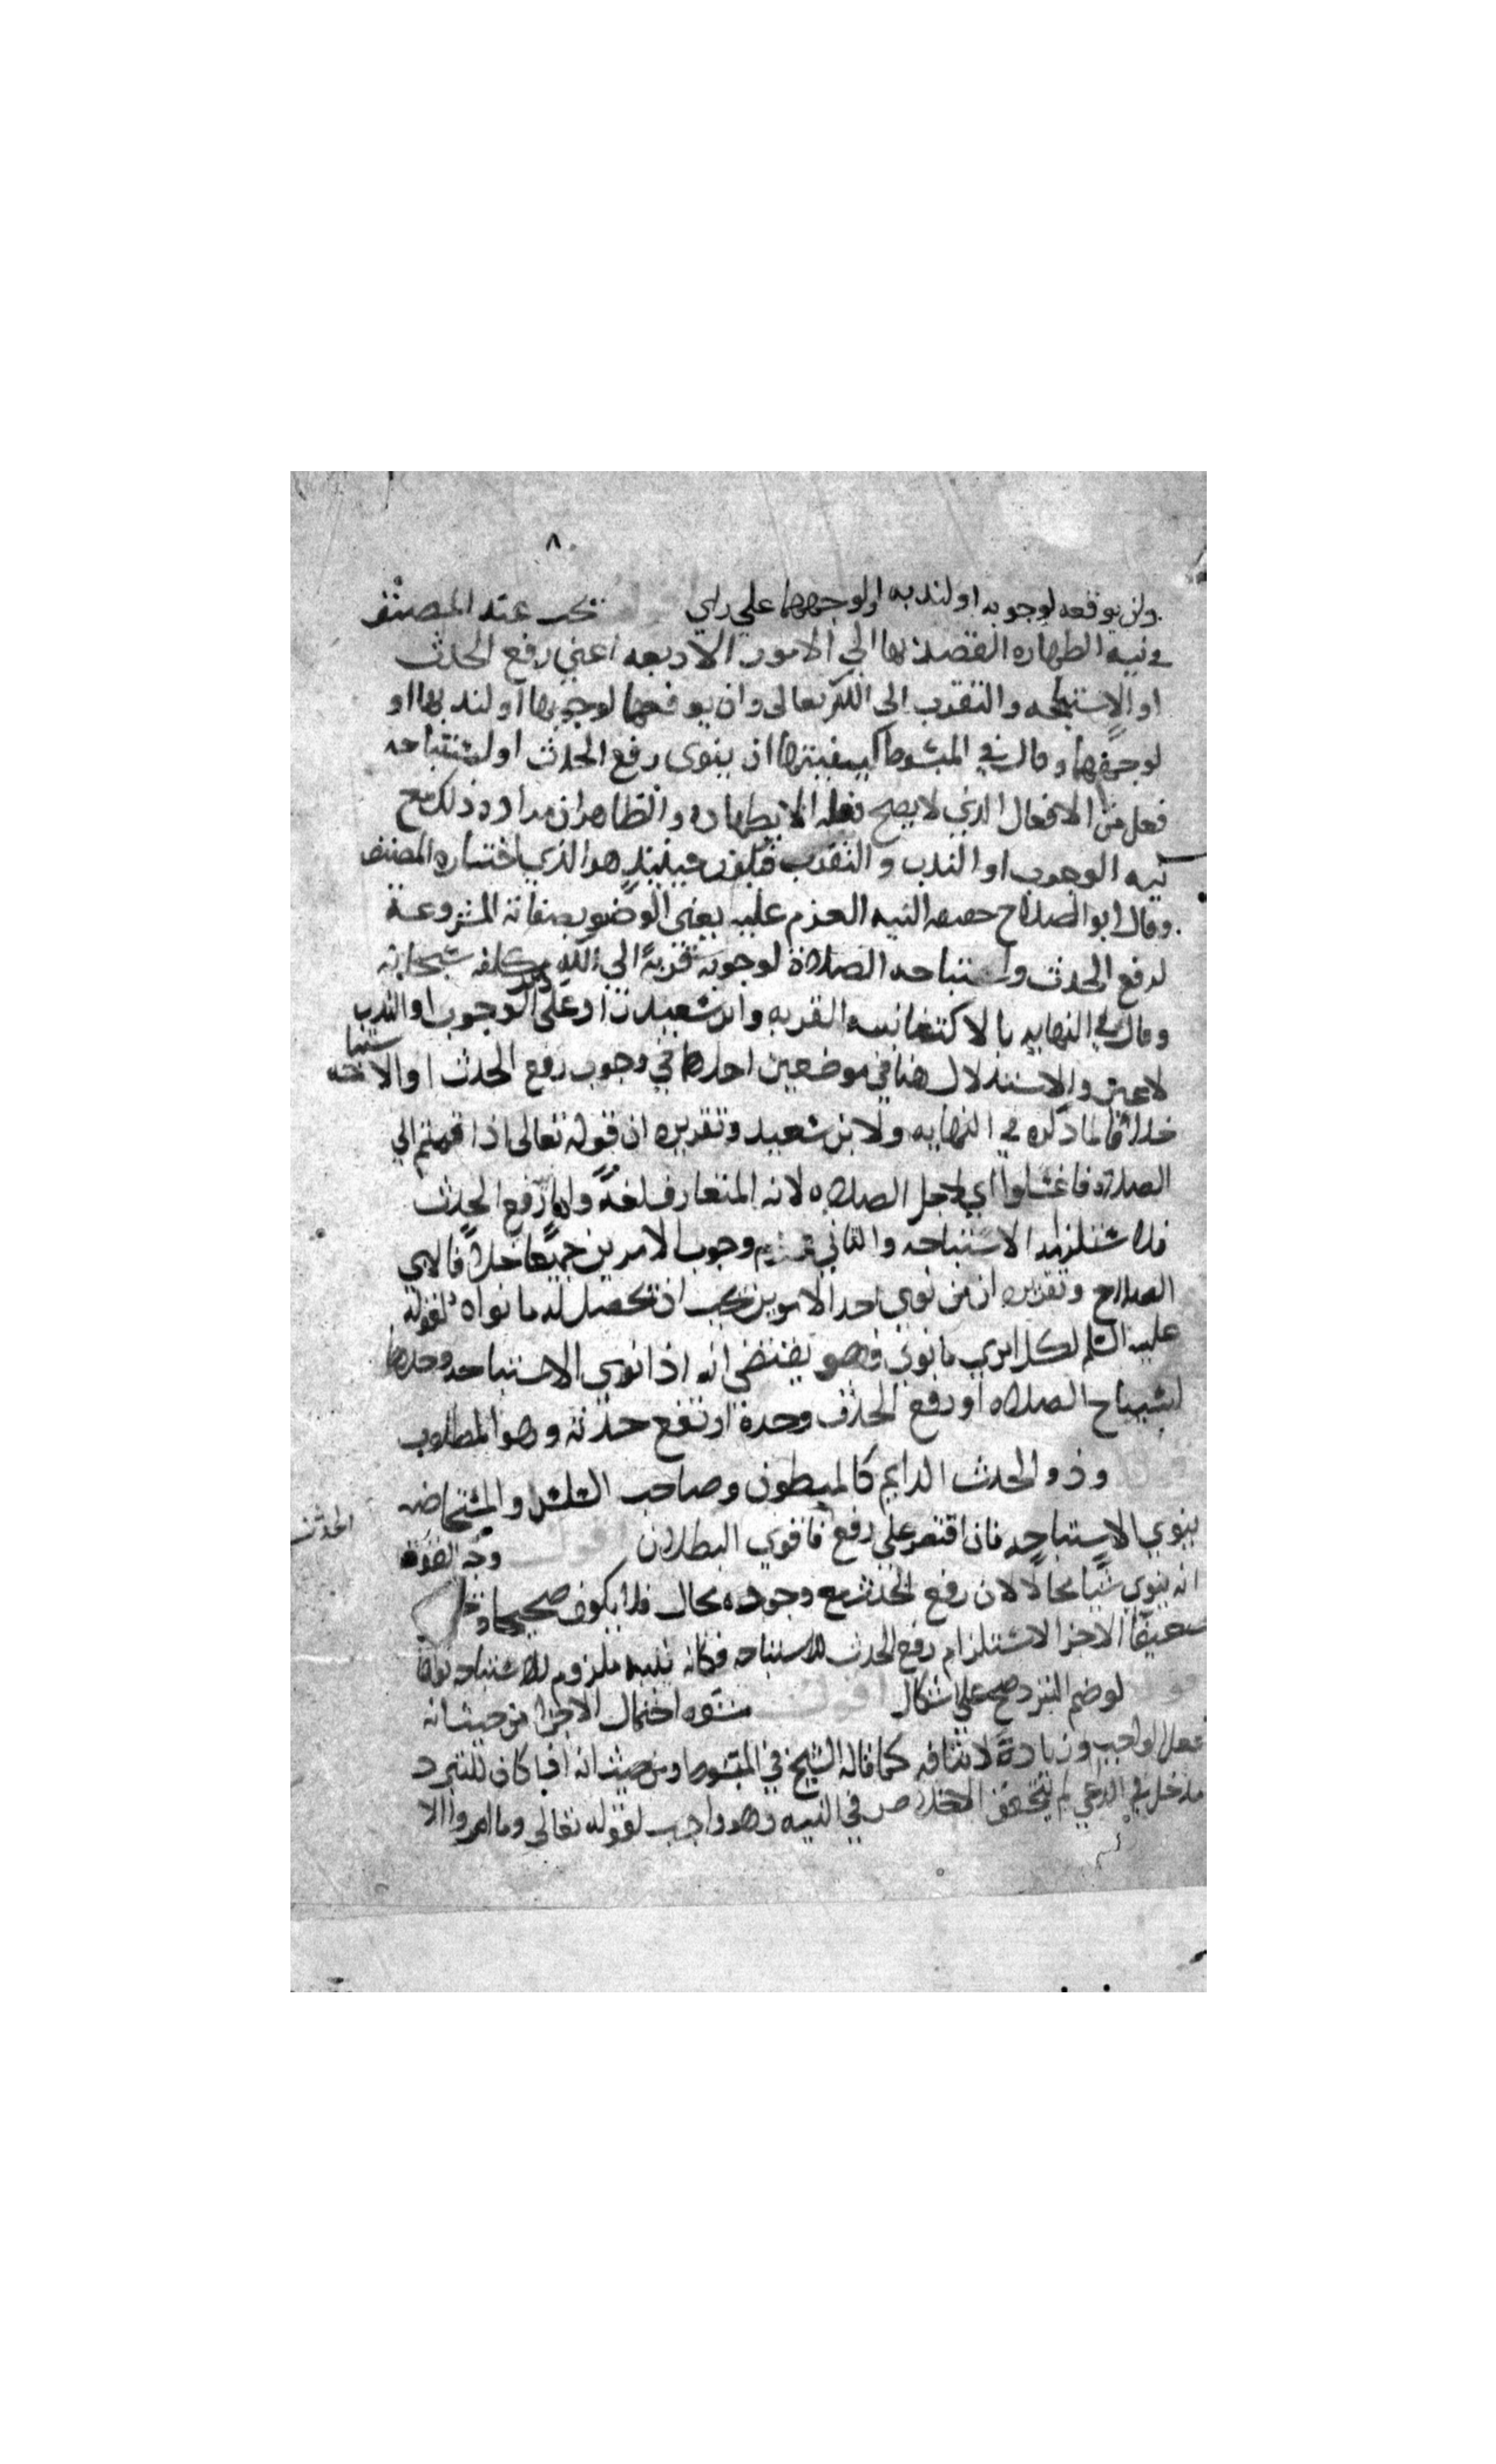 ٨
وان يوقعه لوجوبه او لندبه او لوجههما على راي اقول يجب عند المصنف
في نيه الطهاره القصد بها الى الامور الاربعه اعني رفع الحدث
او الاستباحه والتقرب الى الله تعالى وان يوقعها لوجوبها او لندبها او
لوجههما وقال في المبسوط كيفيتها ان ينوى رفع الحدث او استباحه
فعل من الافعال الذي لا يصح فعله الا بطهاره والظاهر ان مراده ذلك مع
نيه الوجوب او الندب والتقرب فيكون حينئذ هو الذي اختاره المصنف
وقال ابو الصلاح حقيقه النيه العزم عليه يعني الوضو بصفاته المشروعة
لرفع الحدث واستباحه الصلاة لوجوبه قربةً الى الله مكلفه سبحانه
وقال في النهايه بالاكتفا بنيه القربه وابن سعيد زاد على ذلك الوجوب او الندب
لا غير والاستدلال هنا في موضعين احدهما في وجوب رفع الحدث او الاستباحه
خلافا لما ذكره في النهايه ولابن سعيد وتقريره ان قوله تعالى اذا قمتم الى
الصلاة فاغسلوا اي لاجل الصلاه لانه المتعارف لغةً واما رفع الحدث
فلاستلزامه الاستباحه والثاني عدم وجوب الامرين جميعًا خلافا لابي
الصلاح وتقريره ان من نوى احد الامرين يجب ان تحصل له ما نواه لقوله
عليه السلم لكل امرئ ما نوى فهو يقتضي انه اذا نوى الاستباحه وحدها
استباح الصلاه او رفع الحدث وحده ارتفع حدثه وهو المطلوب
قوله وذو الحدث الدايم كالمبطون وصاحب السلس والمستحاضه
ينوي الاستباحه فان اقتصر على رفع الحدث فاقوى البطلان اقول وجه القوة
انه ينوي شيا محالا لان رفع الحدث مع وجوده محال فلا يكون صحيحا
ضعيفا الاجزا لاستلزام رفع الحدث للاستباحه فكانه نيته ملزوم للاستباحه
قوله لو ضم التبرد صح على اشكال اقول منشوه احتمال الاجزا من حيث انه
فعل الواجب وزيادةً لا تنافيه كما قاله الشيخ في المبسوط ومن حيث انه اذا كان للتبرد
مدخل في الداعي لم يتحقق الاخلاص في النيه وهو واجب لقوله تعالى وما امروا الا